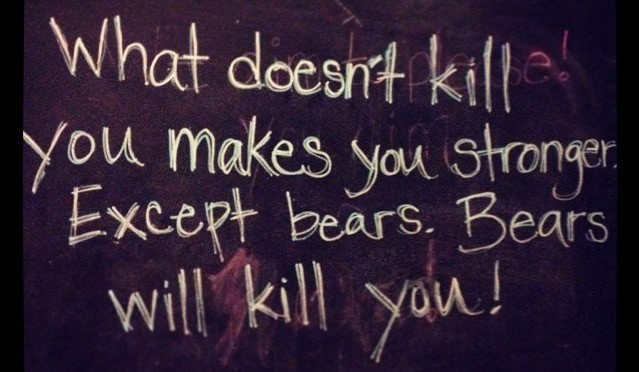 What doesn't kill
you makes you stronger.
Except bears. Bears
will kill you!